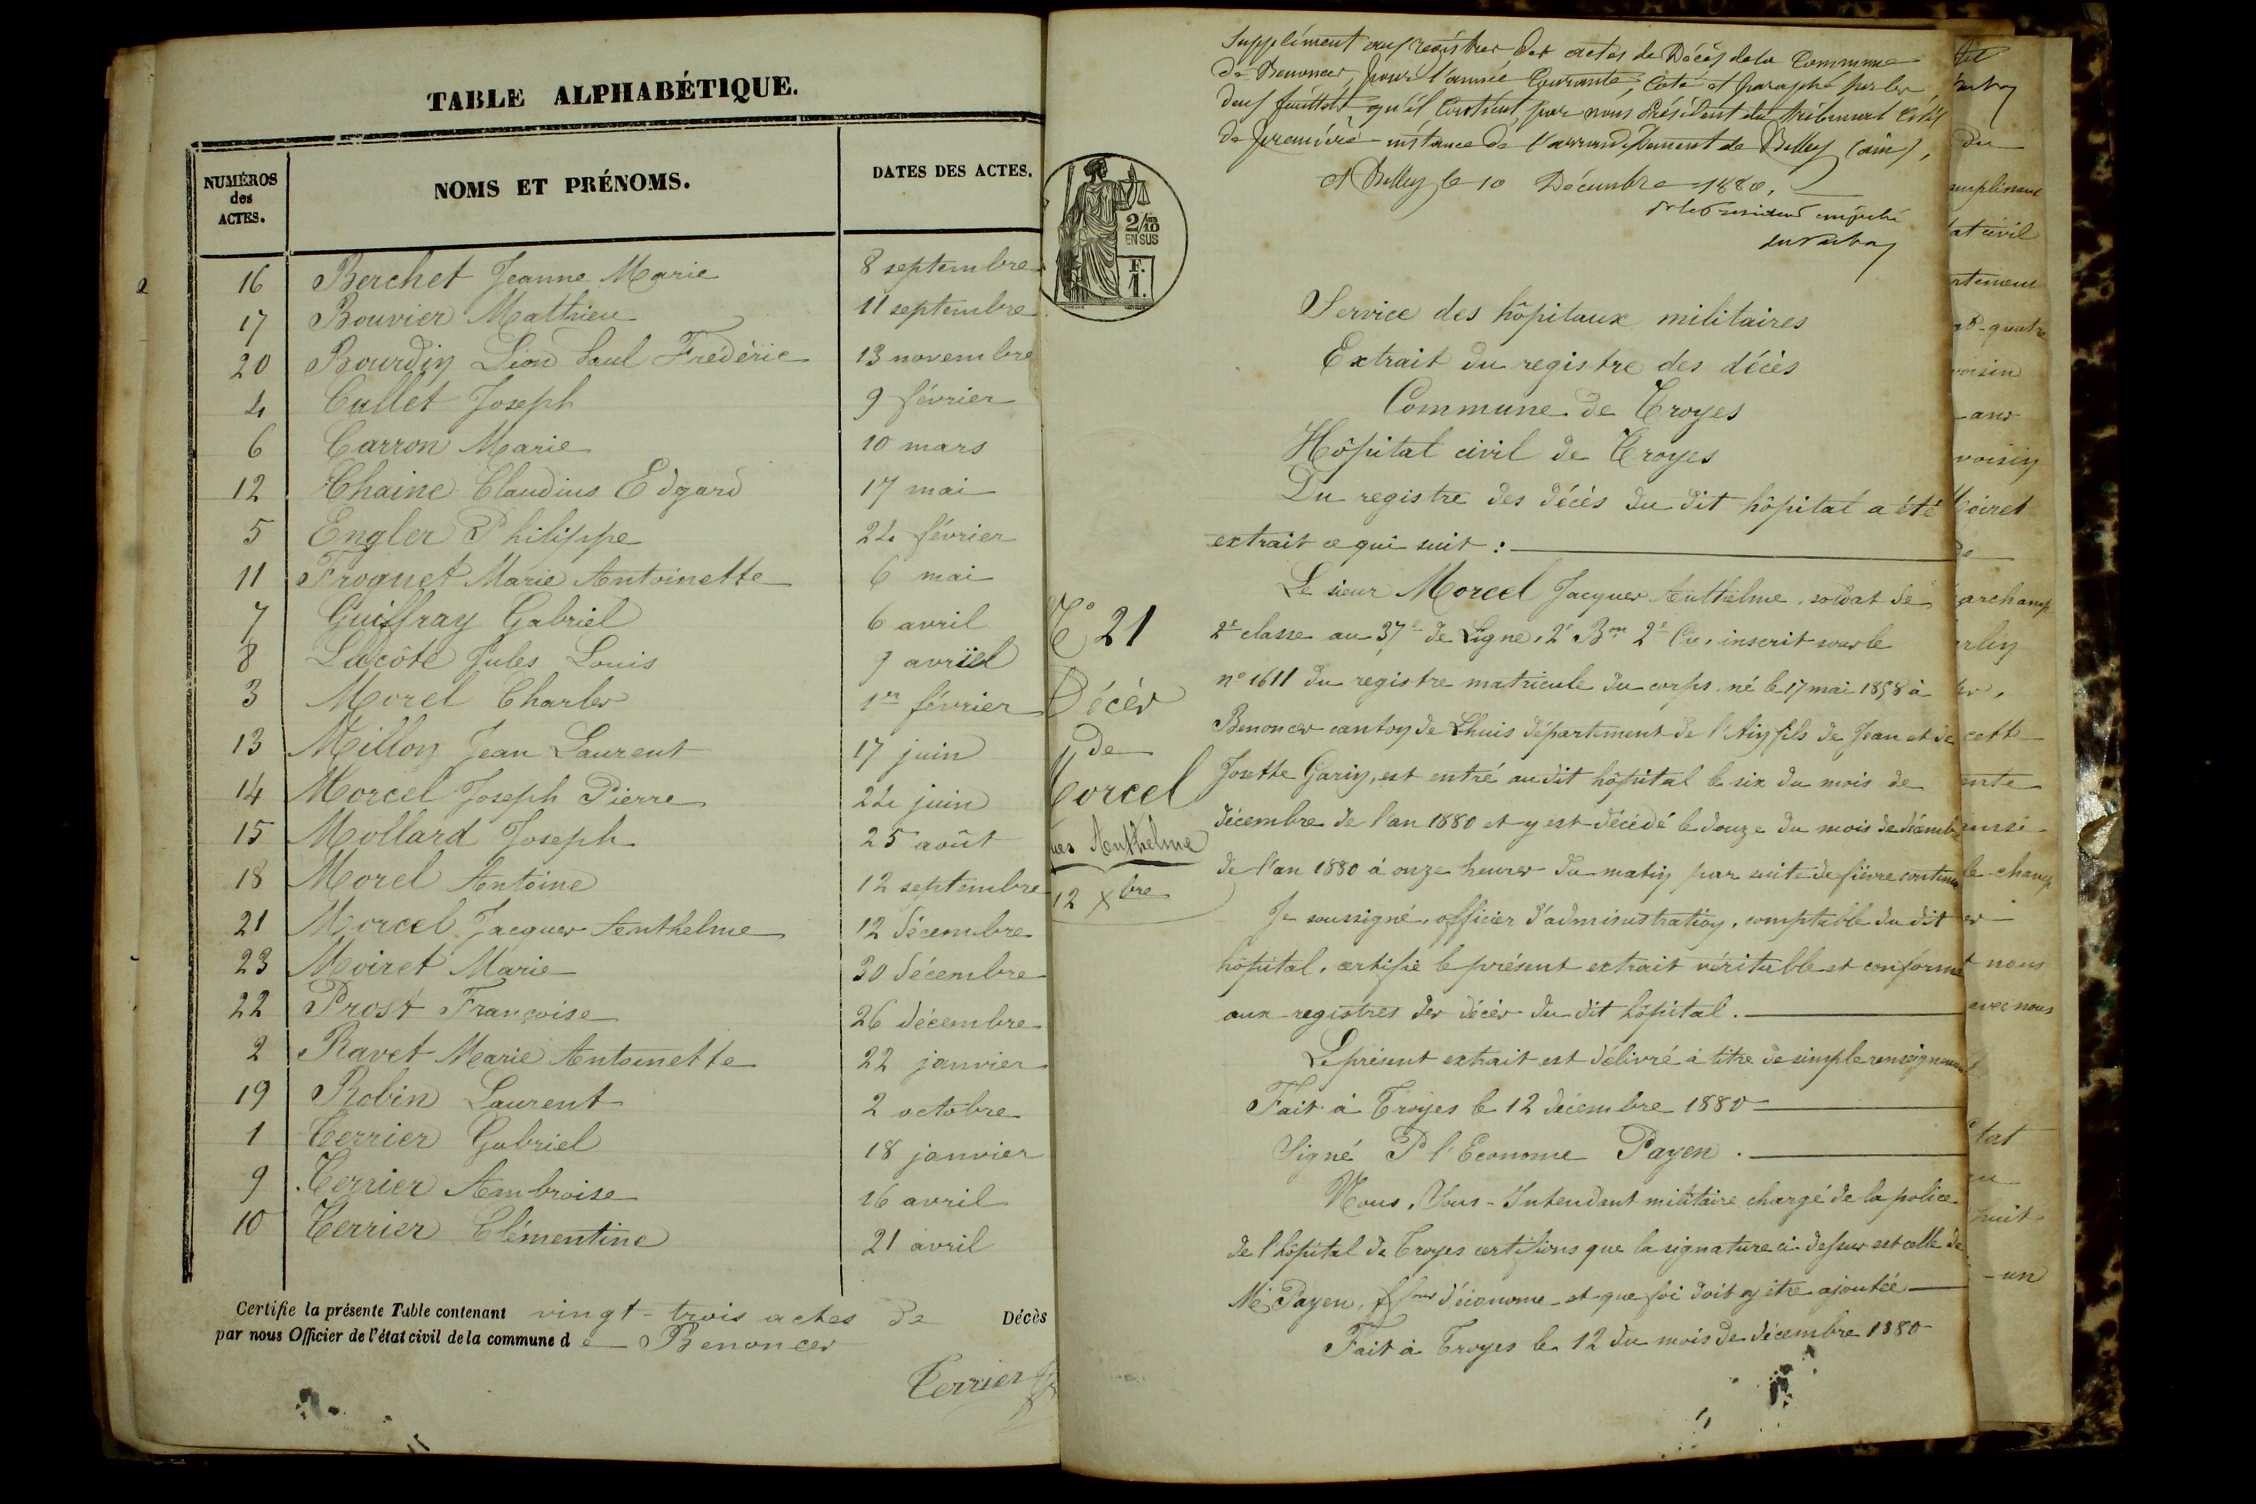 TABLE ALPHABÉTIQUE.
NUMÉROS des ACTES. NOMS ET PRÉNOMS. DATES DES ACTES.
16 Berchet Jeanne Marie 8 septembre
17 Bouvier Mathieu 11 septembre
20 Bourdin Léon Paul Frédéric 13 novembre
4 Callet Joseph 9 février
6 Carron Marie 10 mars
12 Chaine Claudius Edgard 17 mai
5 Engler Philippe 24 février
11 Froquet Marie Antoinette 6 mai
7 Guiffray Gabriel 6 avril
8 Lacôte Jules Louis 7 avril
3 Morel Charles 1er février
13 Millon Jean Laurent 17 juin
14 Morcel Joseph Pierre 24 juin
15 Mollard Joseph 25 août
18 Morel Antoine 12 septembre
21 Morcel Jacques Anthelme 12 décembre
23 Moiret Marie 30 décembre
22 Prost Françoise 26 décembre
2 Ravet Marie Antoinette 22 janvier
19 Robin Laurent 2 octobre
1 Terrier Gabriel 18 janvier
9 Terrier Ambroise 16 avril
10 Terrier Clémentine 21 avril
Certifie la présente Table contenant vingt-trois actes de Décès
par nous Officier de l'état civil de la commune de Benonces
Terrier
Supplément aux registres des actes de Décès de la Commune
de Benonces, pour l'année Courante, coté et paraphé par les
deux feuillets qu'il contient, par nous Président du tribunal Civil
de première instance de l'arrondissement de Belley (ain),
à Belley le 10 Décembre 1880.
pr le Président empêché
2/10
EN SUS
F.
1.
Service des hôpitaux militaires
Extrait du registre des décès
Commune de Troyes
Hôpital civil de Troyes
Du registre des décès du dit hôpital a été
extrait ce qui suit :
Le sieur Morcel Jacques Anthelme, soldat de
2e classe au 37e de Ligne, 2e Bon 2e Cie, inscrit sous le
n° 1611 du registre matricule du corps, né le 17 mai 1858 à
Benonces canton de Lhuis département de l'Ain, fils de Jean et de
Josette Garin, est entré au dit hôpital le six du mois de
décembre de l'an 1880 et y est décédé le douze du mois de décembre
de l'an 1880 à onze heures du matin par suite de fièvre continue
Je soussigné, officier d'administration, comptable du dit
hôpital, certifie le présent extrait véritable et conforme
aux registres des décès du dit hôpital.
Le présent extrait est délivré à titre de simple renseignement
Fait à Troyes le 12 décembre 1880
Signé P l'Econome Payen.
Nous, Sous-Intendant militaire chargé de la police
de l'hôpital de Troyes certifions que la signature ci-dessus est celle de
Mr Payen, d'économe et que foi doit y être ajoutée
Fait à Troyes le 12 du mois de décembre 1880
N° 21
Décès
de
Morcel
Anthelme
12 Xbre
du
at civil
quatre
voisin
ans
voisin
Moiret
de
archamp
cette
nous
avec nous
huit
un